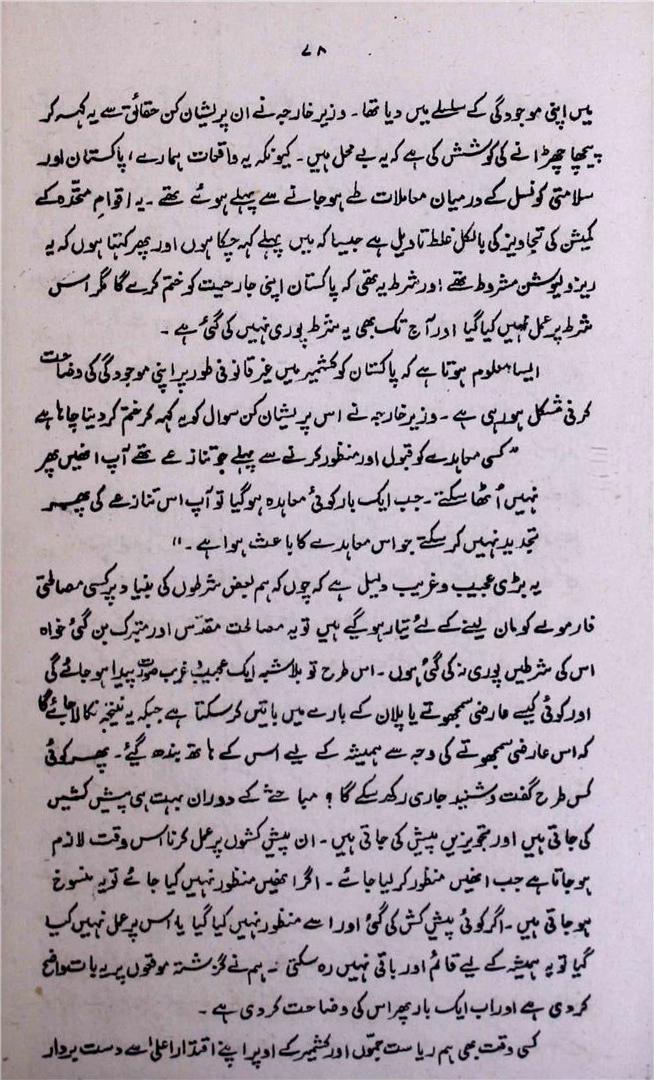 ۷۸
میں اپنی موجودگی کے سلسلے میں دیا تھا۔ وزیر خارجہ نے ان پریشان کن حقائق سے یہ کہہ کر
پیچھا چھڑانے کی کوشش کی ہے کہ یہ بے محل ہیں۔ کیونکہ یہ واقعات ہمارے، پاکستان اور
سلامتی کونسل کے درمیان معاملات طے ہو جانے سے پہلے ہوئے تھے۔ یہ اقوام متحدہ کے
کمیشن کی تجاویز کی بالکل غلط تاویل ہے جیسا کہ میں پہلے کہہ چکا ہوں اور پھر کہتا ہوں کہ یہ
ریزولیوشن مشروط تھے اور شرط یہ تھی کہ پاکستان اپنی جارحیت کو ختم کرے گا مگر اس
شرط پر عمل نہیں کیا گیا اور آج تک بھی یہ شرط پوری نہیں کی گئی ہے۔
ایسا معلوم ہوتا ہے کہ پاکستان کو کشمیر میں غیر قانونی طور پر اپنی موجودگی کی وضاحت
کرنی مشکل ہو رہی ہے۔ وزیر خارجہ نے اس پریشان کن سوال کو یہ کہہ کر ختم کر دینا چاہا ہے
"کسی معاہدے کو قبول اور منظور کرنے سے پہلے جو تنازعے تھے آپ انھیں پھر
نہیں اُٹھا سکتے۔ جب ایک بار کوئی معاہدہ ہو گیا تو آپ اس تنازعے کی پھر
تجدید نہیں کر سکتے جو اس معاہدے کا باعث ہوا ہے۔"
یہ بڑی عجیب و غریب دلیل ہے کہ چوں کہ ہم بعض شرطوں کی بنیاد پر کسی مصالحتی
فارمولے کو مان لینے کے لئے تیار ہو گیے ہیں تو یہ مصالحت مقدّس اور متبرک بن گئی خواہ
اس کی شرطیں پوری نہ کی گئی ہوں۔ اس طرح تو بلاشبہ ایک عجیب و غریب صورت پیدا ہو جائے گی
اور کوئی کیسے عارضی سمجھوتے یا پلان کے بارے میں باتیں کر سکتا ہے جبکہ یہ نتیجہ نکالا جائے گا
کہ اس عارضی سمجھوتے کی وجہ سے ہمیشہ کے لیے اس کے ہاتھ بندھ گیے۔ پھر کوئی
کس طرح گفت و شنید جاری رکھ سکے گا؟ مباحثے کے دوران بہت ہی پیش کشیں
کی جاتی ہیں اور تجویزیں پیش کی جاتی ہیں۔ ان پیش کشوں پر عمل کرنا اس وقت لازم
ہو جاتا ہے جب انھیں منظور کر لیا جائے۔ اگر انھیں منظور نہیں کیا جائے تو یہ منسوخ
ہو جاتی ہیں۔ اگر کوئی پیش کش کی گئی اور اسے منظور نہیں کیا گیا یا اس پر عمل نہیں کیا
گیا تو یہ ہمیشہ کے لیے قائم اور باقی نہیں رہ سکتی۔ ہم نے گزشتہ موقعوں پر یہ بات واضح
کر دی ہے اور اب ایک بار پھر اس کی وضاحت کر دی ہے۔
کسی وقت بھی ہم ریاست جموں اور کشمیر کے اوپر اپنے اقتدار اعلیٰ سے دست بردار